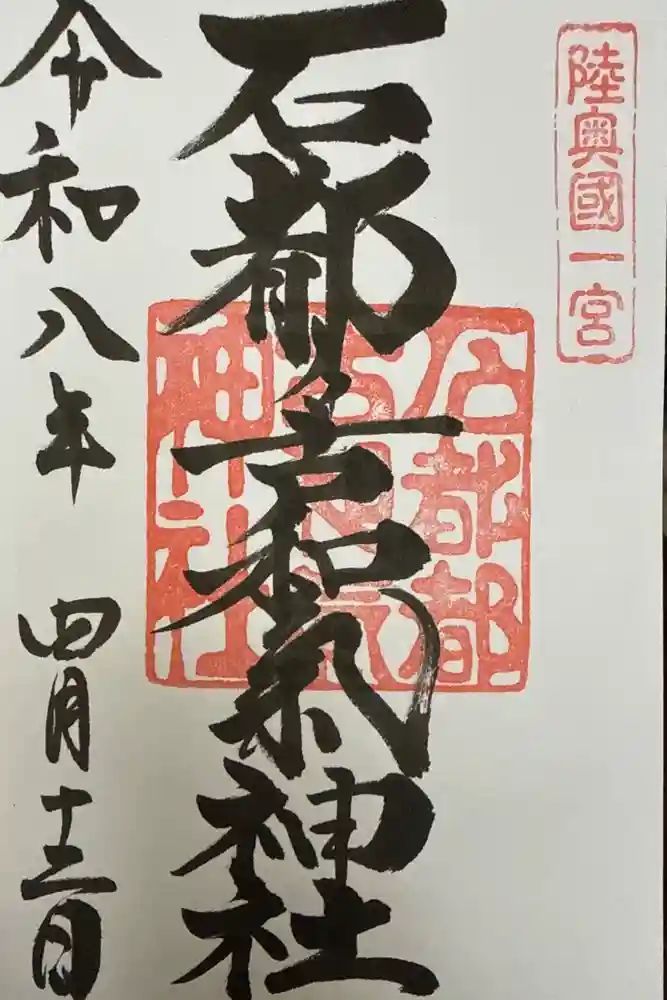 陸奥國一宮
石都々古和氣神社
石都都古和氣神社
令和八年 四月十二日